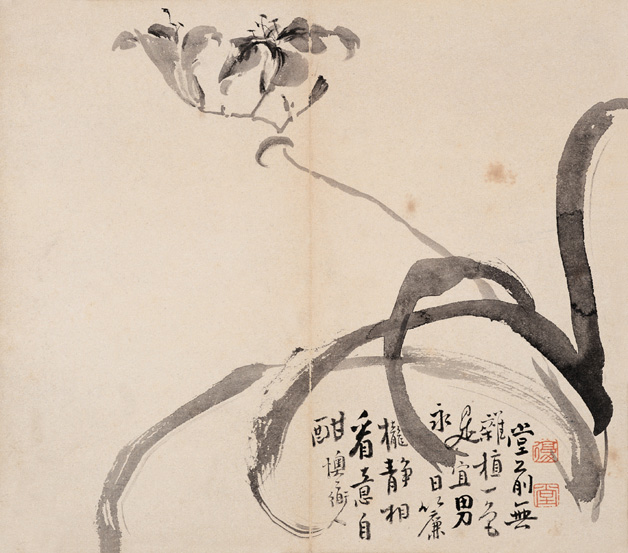 堂前無
雜植一色
是宜男
永日簾
櫳靜相
看意自
酣
懊衜人
復堂